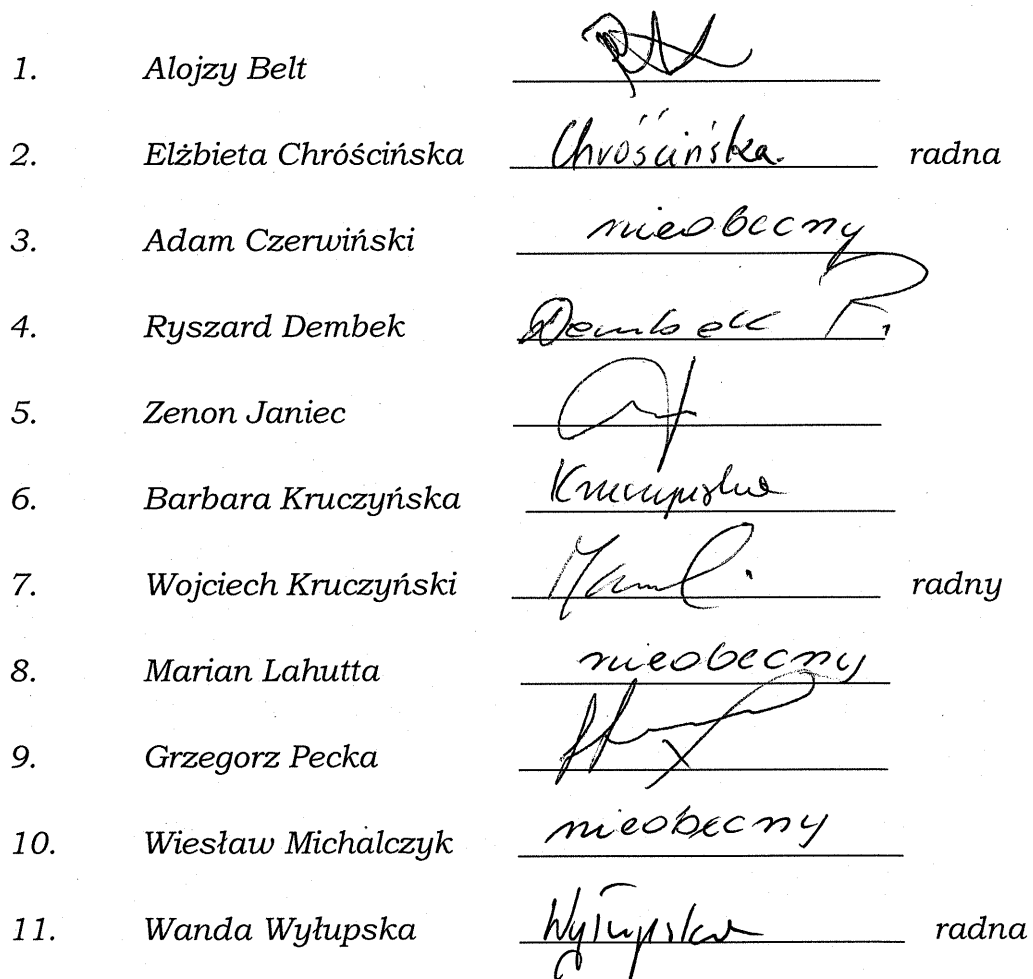 1. Alojzy Belt
2. Elżbieta Chróścińska Chróścińska radna
3. Adam Czerwiński nieobecny
4. Ryszard Dembek Dembek R.
5. Zenon Janiec
6. Barbara Kruczyńska Kruczyńska
7. Wojciech Kruczyński radny
8. Marian Lahutta nieobecny
9. Grzegorz Pecka
10. Wiesław Michalczyk nieobecny
11. Wanda Wyłupska Wyłupska radna